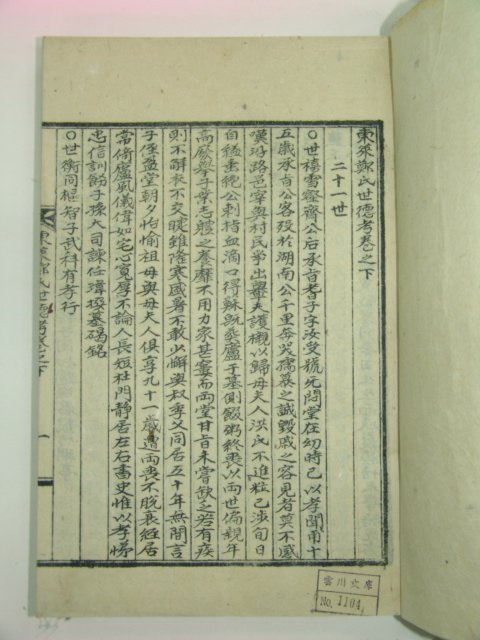 東萊鄭氏世德考卷之下
二十一世
○世禧雪壑齋公后承旨耆子字汝受號元閤堂在幼時已以孝聞甫十
五歲承旨公客歿於湖南公千里奔哭孺慕之誠毀戚之容見者莫不感
嘆沿路邑宰與村民爭出轝夫護櫬以歸母夫人洪氏不進粒已涉旬日
自經垂絶公刺指血滴口得穌旣葬廬子墓側餟粥終喪以兩世偏親年
高廢擧子業志體之養靡不用力家甚窶而兩堂甘旨未嘗歉之若有疾
則不解衣不交睫雖隆寒國暑不敢少懈與叔季父同居五十年無間言
子侄盈堂朝夕怡愉祖母與母夫人俱享九十一歲遭兩喪不脫衰絰居
常倚廬風儀偉如宅心寬厚不論人長短杜門靜居左右啚史惟以孝悌
忠信訓飭子孫大司諫任瑋撰墓碣銘
○世衡同樞智子武科有孝行
東萊鄭氏世德考卷之下
一
雲川文庫
No. 1104